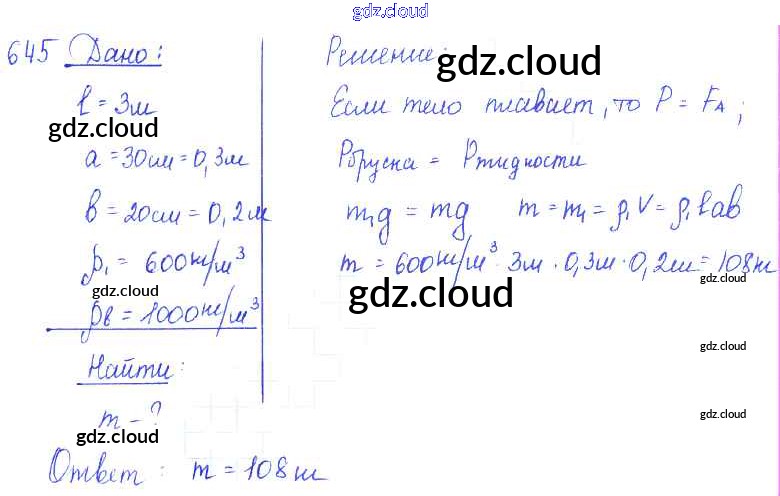 gdz.cloud
645 Дано:
l = 3м
gdz.cloud
a = 30см = 0,3м
в = 20см = 0,2м
ρ₁ = 600кг/м³
gdz.cloud
ρв = 1000кг/м³
Найти:
m - ?
gdz.cloud
Ответ: m = 108кг
Решение:
gdz.cloud
Если тело плавает, то P = FA;
Pбруска = Pжидкости
m₁g = mg m = m₁ = ρ₁V = ρ₁lab
m = 600кг/м³ · 3м · 0,3м · 0,2м = 108кг
gdz.cloud
gdz.cloud
gdz.cloud
gdz.cloud